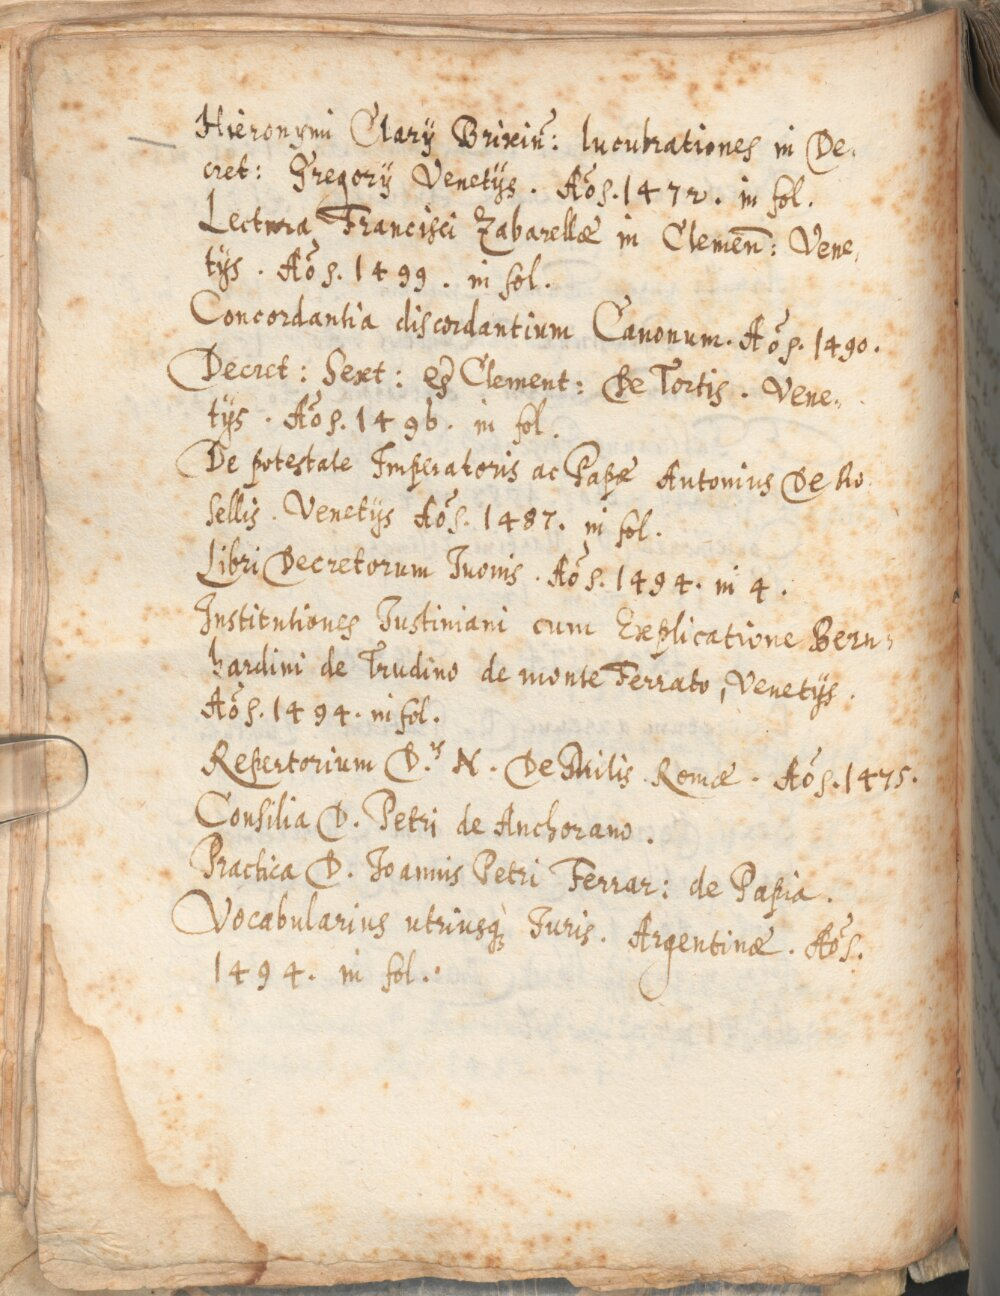 Hieronymi Clarÿ Brixiñ: lucubrationes in De,
cret: Gregorÿ Venetÿs. Aõs. 1472. in fol.
Lectura Francisci Zabarellæ in Clemen̄: Vene,
tÿs. Aõs. 1499. in fol.
Concordantia discordantium Canonum. Aõs. 1490.
Decret: Sext: et Clement: De Tortis. Vene,
tÿs. Aõs. 1496. in fol.
De potestate Imperatoris ac Papæ Antonius De Ro,
sellis. Venetÿs Aõs. 1487. in fol.
Libri Decretorum Iuonis. Aõs. 1494. in 4.
Institutiones Justiniani cum Explicatione Bern,
hardini de Trudino de monte Ferrato, Venetÿs.
Aõs. 1494. in fol.
Repertorium D.is N. De Milis. Romæ. Aõs. 1475.
Consilia D. Petri de Anchorano.
Practica D. Joannis Petri Ferrar: de Papia.
Vocabularius utriusq; Juris. Argentinæ. Aõs.
1494. in fol.